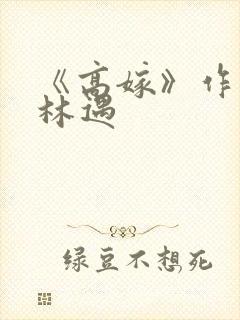 《高嫁》作
林遇
绿豆不想死